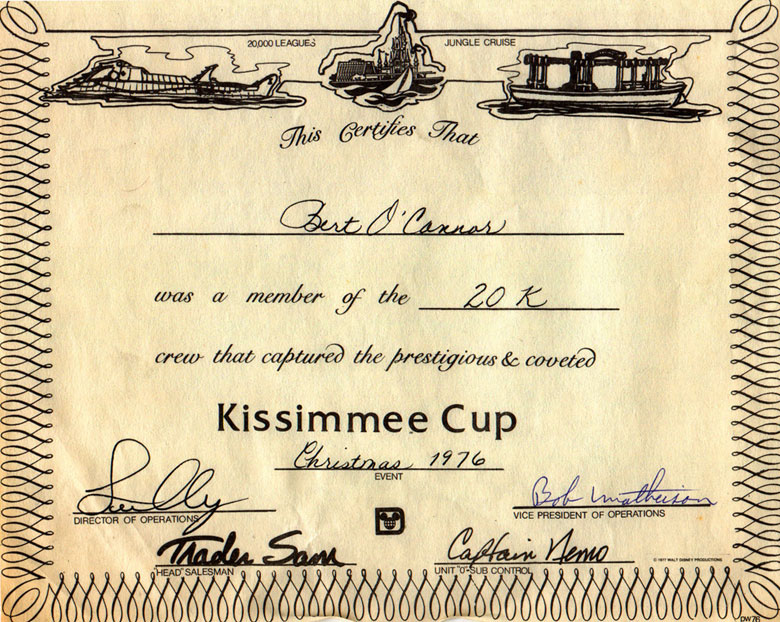 20,000 LEAGUES
JUNGLE CRUISE
This Certifies That
Bert O'Connor
was a member of the 20 K
crew that captured the prestigious & coveted
Kissimmee Cup
Christmas 1976
EVENT
DIRECTOR OF OPERATIONS
Bob Matheison
VICE PRESIDENT OF OPERATIONS
Trader Sam
"HEAD" SALESMAN
Captain Nemo
UNIT "O"-SUB CONTROL
© 1977 WALT DISNEY PRODUCTIONS
DW76